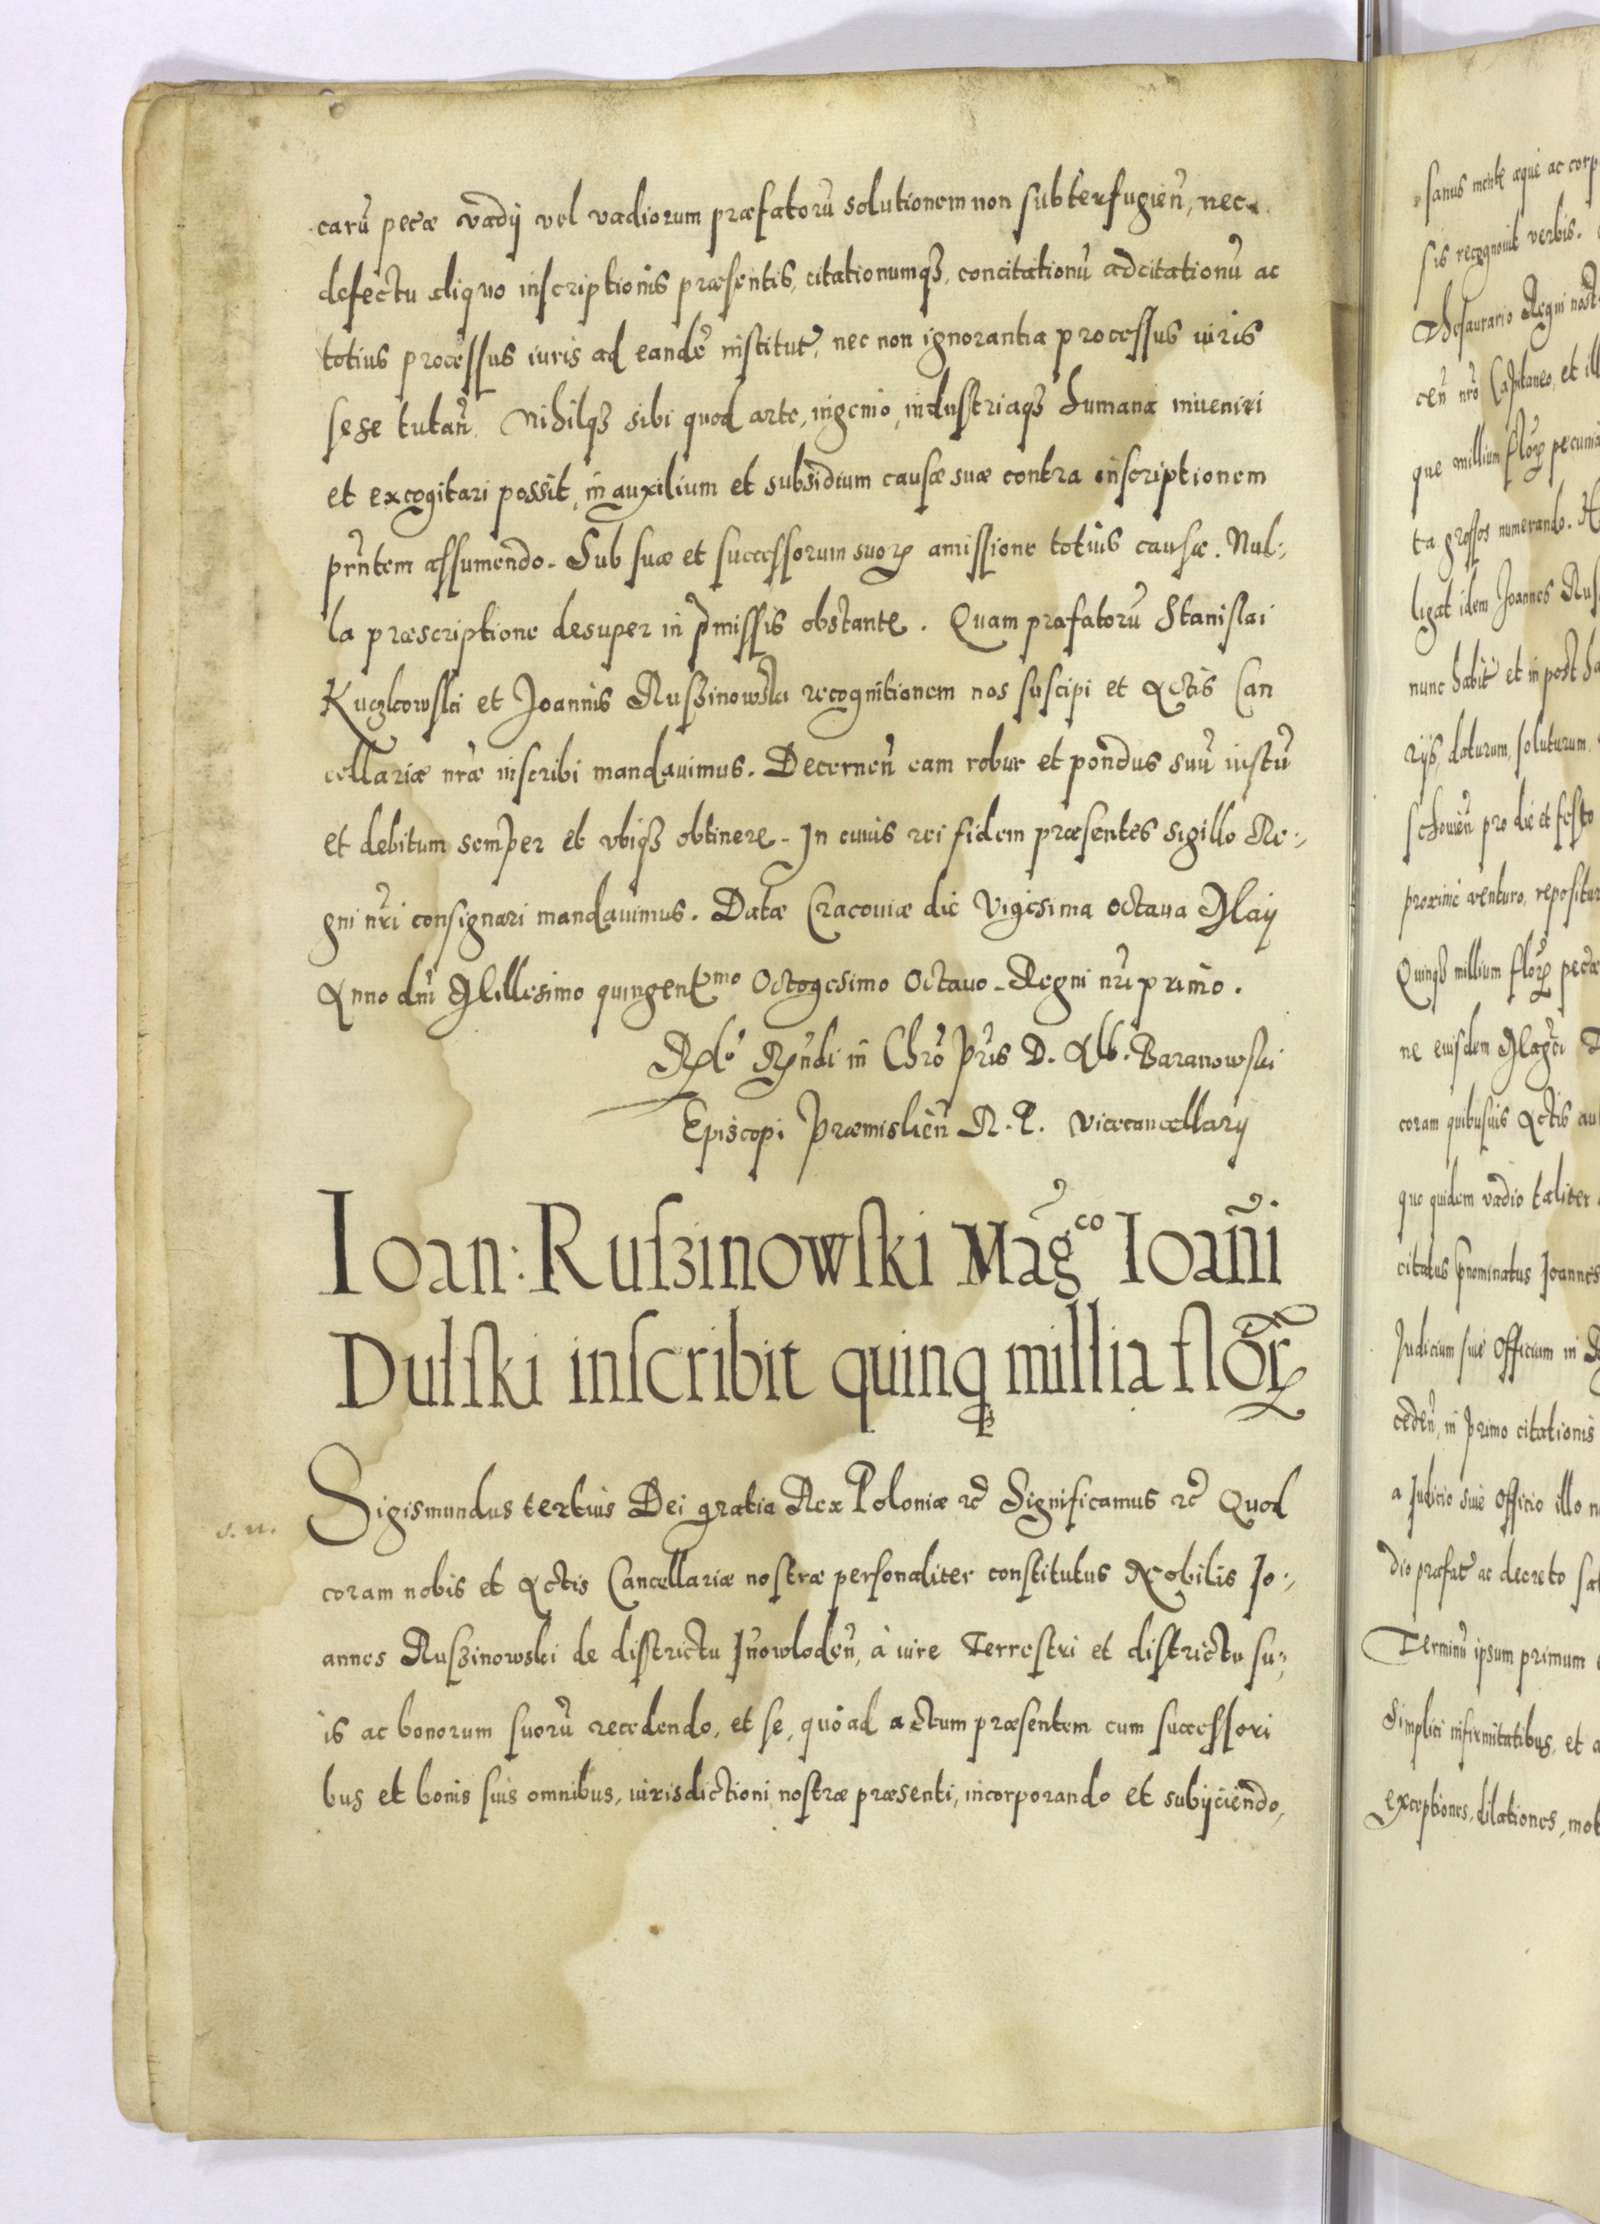 carũ pecæ vadij vel vadiorum præfatorũ solutionem non subterfugień, nec
defectu aliquo inscriptionis præsentis, citationumqȝ, concitationũ adcitationũ ac
totius processus iuris ad eandẽ institut, nec non ignorantia processus iuris
sese tutań. Nihilqȝ sibi quod arte, ingenio, industriaqȝ humana inueniri
et excogitari possit, in auxilium et subsidium causæ suæ contra inscriptionem
prñtem assumendo. Sub suæ et successorum suoꝝ amissione totius causæ. Nul-
la præscriptione desuper in p̃missis obstante. Quam prafatorũ Stanislai
Kuczkowski et Joannis Rusȝinowski recognitionem nos suscipi et Actis Can
cellariæ nræ inscribi mandauimus. Decerneń eam robur et pondus suũ iustũ
et debitum semper et vbiqȝ obtinere. In cuius rei fidem præsentes sigillo Re-
gni nri consignari mandauimus. Datæ Cracouiæ die Vigesima octaua Maij
Anno dni Millesimo quingentmo Octogesimo Octauo. Regni nri primo.
Rlo Rndi in Chro Pris D. Alb. Baranowski
Episcopi Præmislień R. P. Vicecancellarij
Ioan: Rusȝinowski Magco Ioañi
Dulski inscribit quinqȝ millia floꝝ
s. n.
Sigismundus tertius Dei gratia Rex Poloniæ &c Significamus &c Quod
coram nobis et Actis Cancellariæ nostræ personaliter constitutus Nobilis Jo-
annes Rusȝinowski de districtu Jnowlodeń, à iure Terrestri et districtu su-
is ac bonorum suorũ recedendo, et se, quo ad actum præsentem cum successori
bus et bonis suis omnibus, iurisdictioni nostræ præsenti, incorporando et subijciendo,
sanus mente æque ac corp
sis recognouit verbis.
Thesaurario Regni nost
ceń nro Capitaneo, et ill
que millium floꝝ pecunia
ta grossos numerando. H
ligat idem Joannes Rus
nunc habit et in post ha
rijs, daturum, soluturum,
schoueń pro die et festo
proxime venturo, repositur
Quinqȝ millium floꝝ pecæ
ne eiusdem Magci D
coram quibusuis Actis au
quo quidem vadio taliter
citatus pnominatus Joannes
Judicium siue Officium in
cedeń, in primo citationis
a Judicio siue Officio illo n
dio præfat ac decreto sat
Terminũ ipsum primum
Simplici infirmitatibus, et a
exceptiones, dilationes, mot